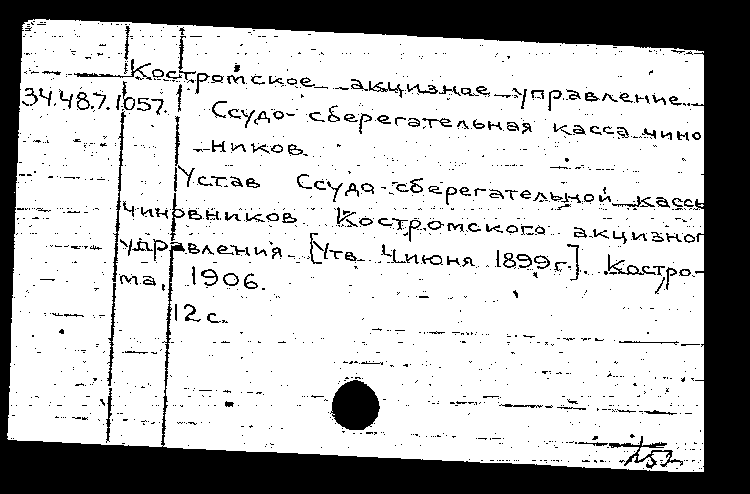 Костромское акцизное управление
34.48.7.1057. Ссудо-сберегательная касса чино
ников.
Устав Ссудо-сберегательной кассы
чиновников Костромского акцизног
управления. [Утв. 4 июня 1899 г.]. Костро-
ма, 1906.
12 с.